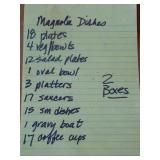 Magnolia Dishes
18 plates
4 veg/bowls
12 salad plates
1 oval bowl
3 platters
17 saucers
15 sm dishes
1 gravy boat
17 coffee cups
2
Boxes